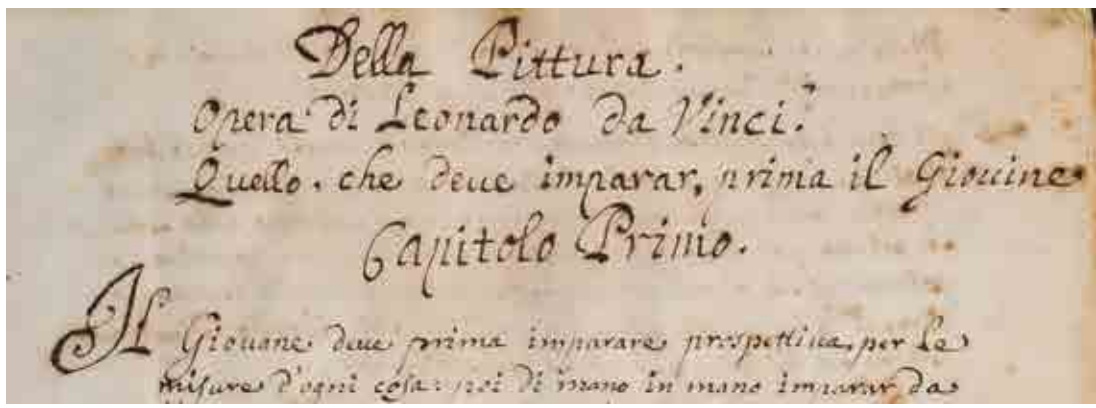 Della Pittura.
Opera di Leonardo da Vinci.
Quello, che deue imparar, prima il Giouine
Capitolo Primo.
Il Giouane deue prima imparare prospettiua, per le
misure d'ogni cosa: poi di mano in mano imparar da